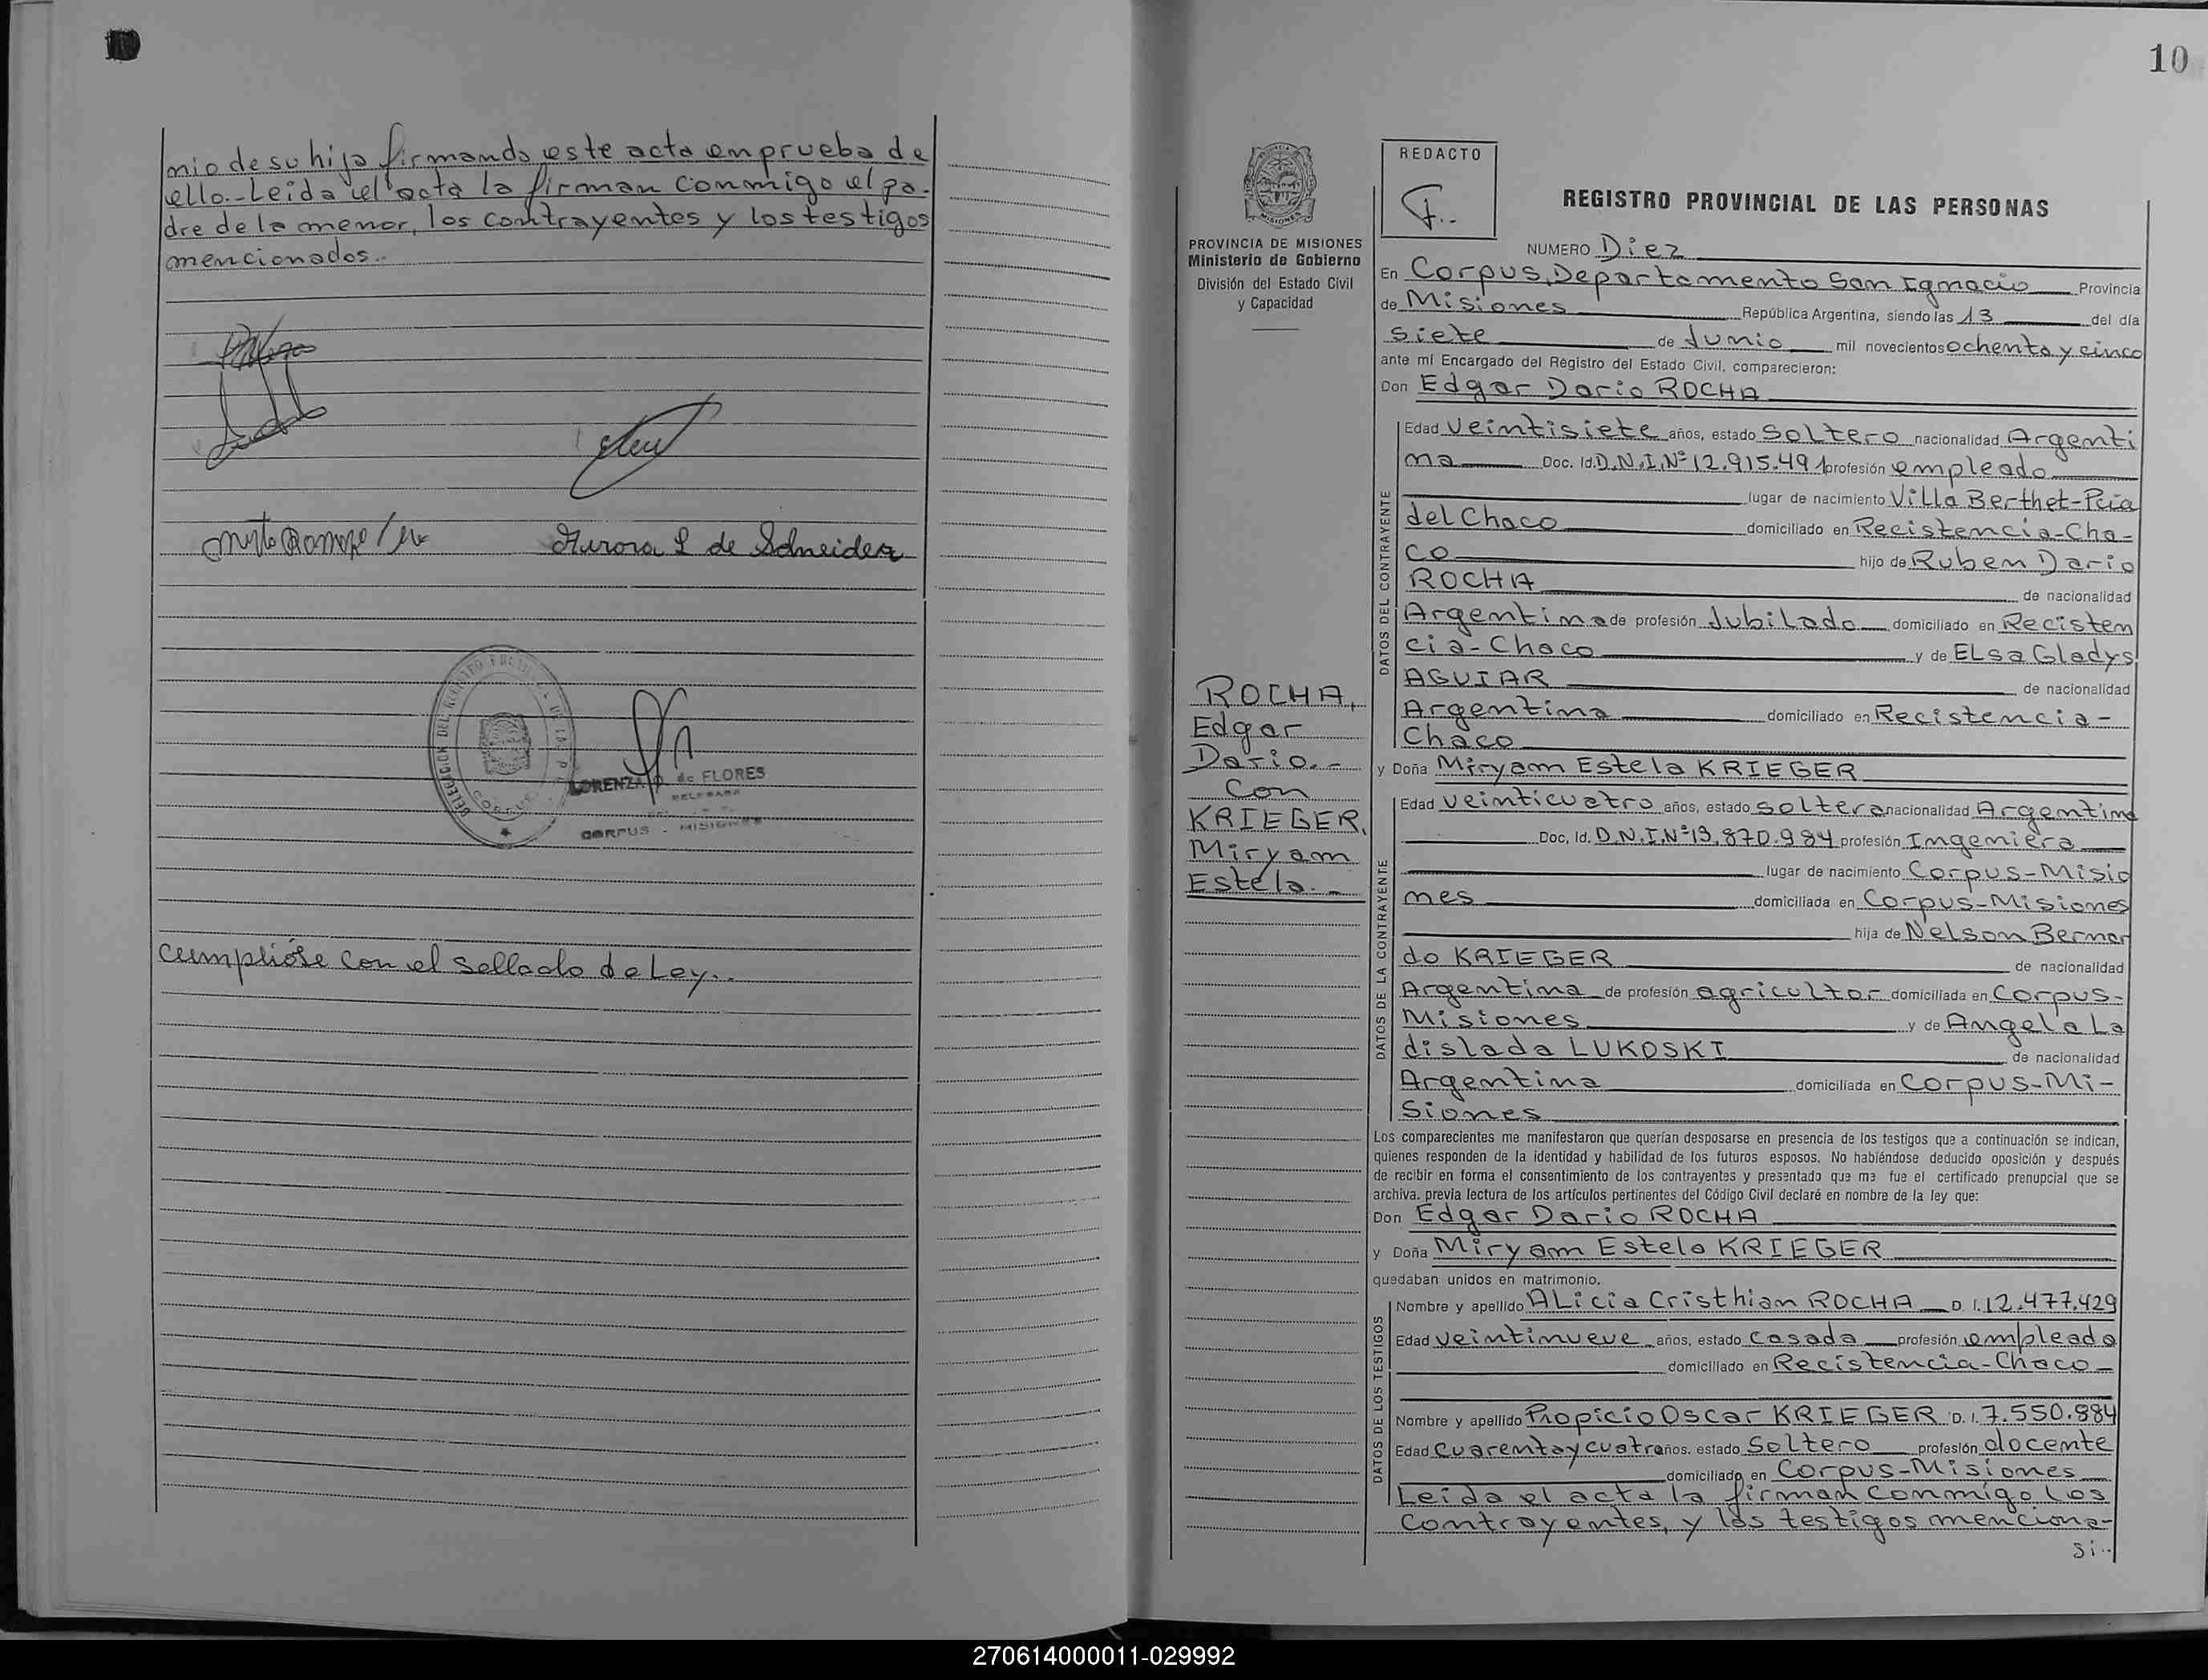 mio de su hija firmando este acta en prueba de
ello.- Leida el acta la firman conmigo el pa-
dre de la menor, los contrayentes y los testigos
mencionados.-
Aurora L de Schneider
LORENZA de FLORES
DELEGADA
CORPUS - MISIONES
cumplióse con el sellado de Ley.-
10
REDACTO
F..
REGISTRO PROVINCIAL DE LAS PERSONAS
PROVINCIA DE MISIONES
Ministerio de Gobierno
División del Estado Civil
y Capacidad
NUMERO Diez
En Corpus, Departamento San Ignacio Provincia
de Misiones República Argentina, siendo las 13 del día
siete de Junio mil novecientos ochenta y cinco
ante mí Encargado del Registro del Estado Civil, comparecieron:
Don Edgar Dario ROCHA
DATOS DEL CONTRAYENTE
Edad veintisiete años, estado soltero nacionalidad Argenti
na Doc. Id. D.N.I.Nº 12.915.491 profesión empleado
lugar de nacimiento Villa Berthet-Pcia
del Chaco domiciliado en Recistencia-Cha-
co hijo de Ruben Dario
ROCHA de nacionalidad
Argentina de profesión Jubilado domiciliado en Recisten
cia-Chaco y de ELsa Gladys
AGUIAR de nacionalidad
Argentina domiciliado en Recistencia-
Chaco
ROCHA,
Edgar
Dario.-
Con
KRIEGER,
Miryam
Estela.-
y Doña Miryam Estela KRIEGER
DATOS DE LA CONTRAYENTE
Edad veinticuatro años, estado soltera nacionalidad Argentina
Doc, Id. D.N.I.Nº 13.870.984 profesión Ingeniera
lugar de nacimiento Corpus-Misio
nes domiciliada en Corpus-Misiones
hija de Nelson Bernar
do KRIEGER de nacionalidad
Argentina de profesión agricultor domiciliada en Corpus-
Misiones y de Angela La
dislada LUKOSKI de nacionalidad
Argentina domiciliada en Corpus-Mi-
siones
Los comparecientes me manifestaron que querían desposarse en presencia de los testigos que a continuación se indican,
quienes responden de la identidad y habilidad de los futuros esposos. No habiéndose deducido oposición y después
de recibir en forma el consentimiento de los contrayentes y presentado que me fue el certificado prenupcial que se
archiva. previa lectura de los artículos pertinentes del Código Civil declaré en nombre de la ley que:
Don Edgar Dario ROCHA
y Doña Miryam Estela KRIEGER
quedaban unidos en matrimonio.
DATOS DE LOS TESTIGOS
Nombre y apellido ALicia Cristhian ROCHA D. I. 12.477.429
Edad veintinueve años, estado casada profesión empleada
domiciliado en Recistencia-Chaco
Nombre y apellido Propicio Oscar KRIEGER D. I. 7.550.884
Edad cuarenta y cuatro años. estado soltero profesión docente
domiciliado en Corpus-Misiones
Leida el acta la firman conmigo los
contrayentes, y los testigos menciona-
si..
270614000011-029992